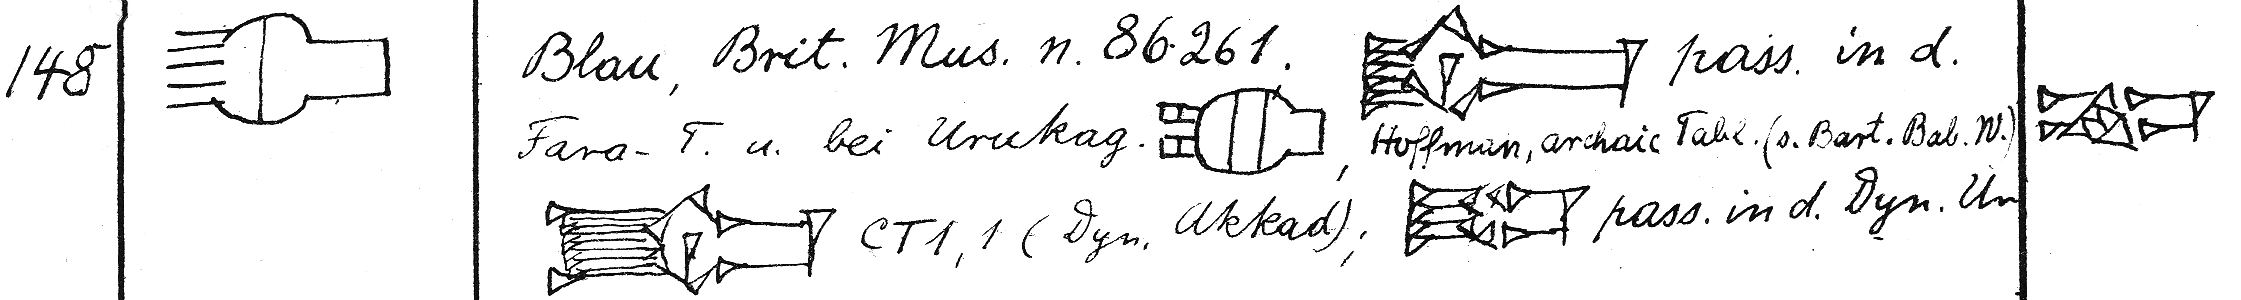 148 Blau, Brit. Mus. n. 86·261. pass. in d.
Fara- T. u. bei Urukag. , Hoffman, archaic Tabl. (s. Bart. Bab. W.)
CT 1, 1 (Dyn. Akkad), pass. in d. Dyn. Ur